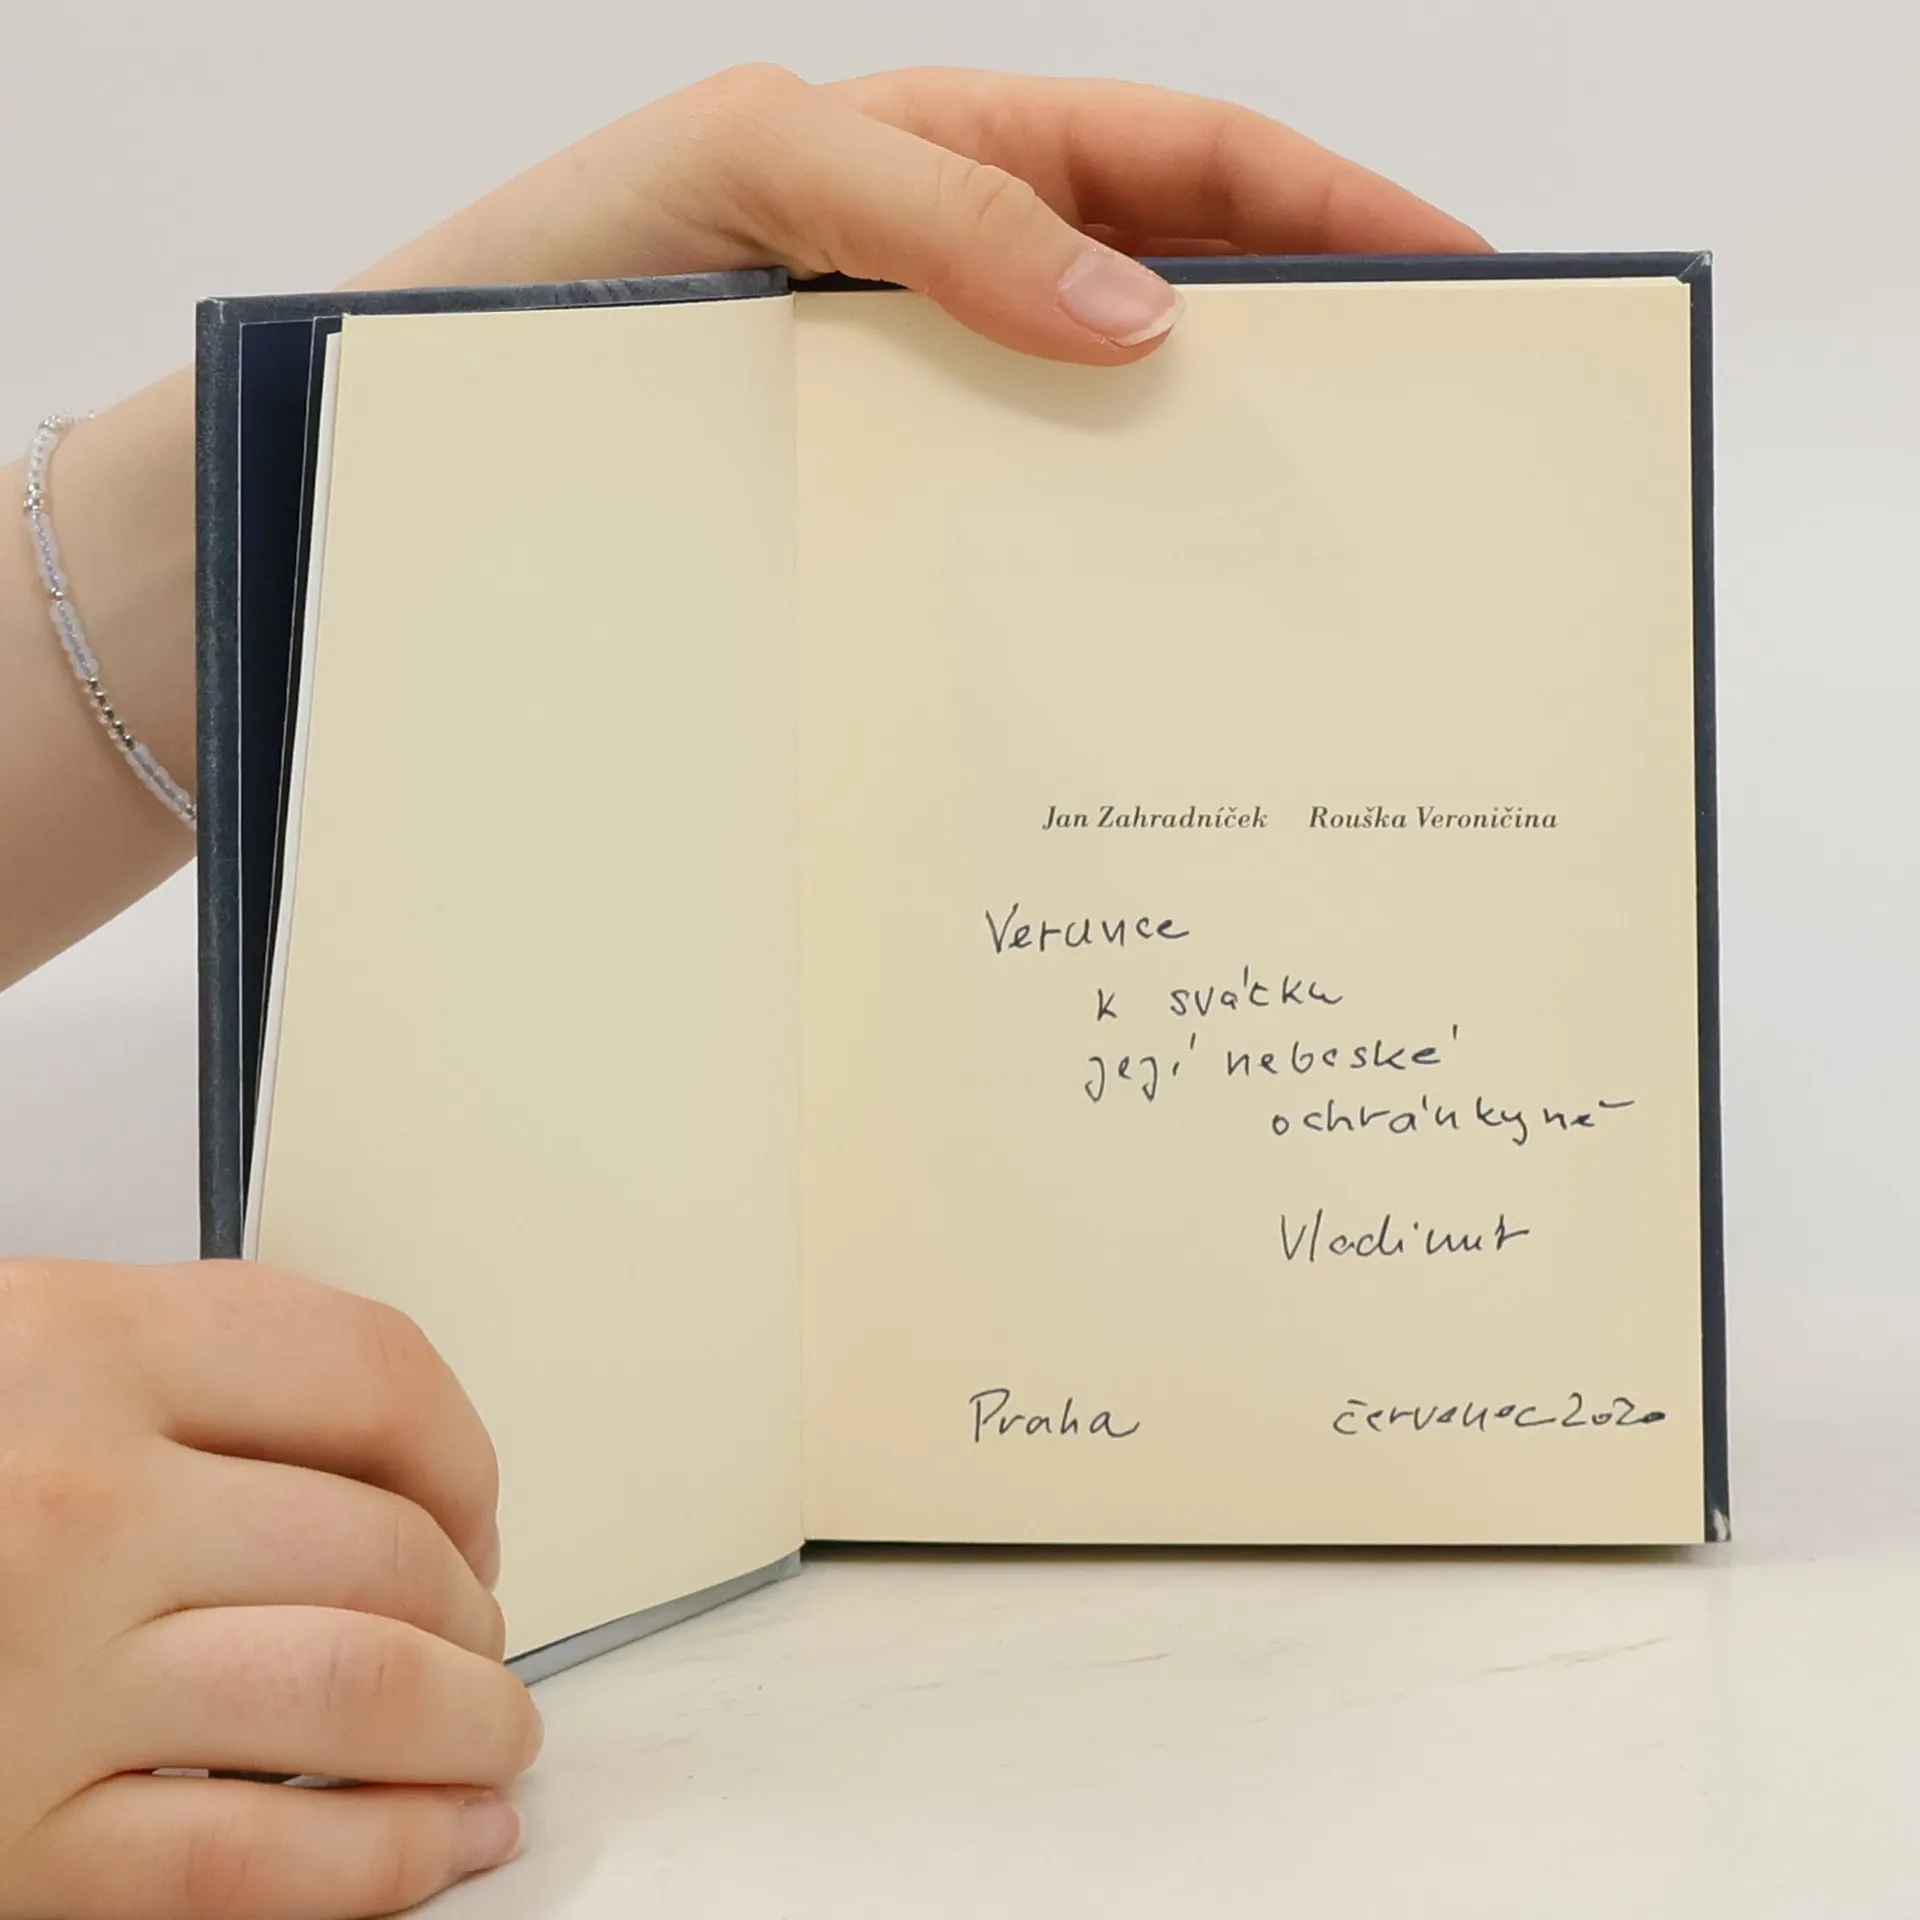 Jan Zahradníček Rouška Veroničina
Verunce
k svátku
její nebeské
ochránkyně
Vladimír
Praha červenec 2020